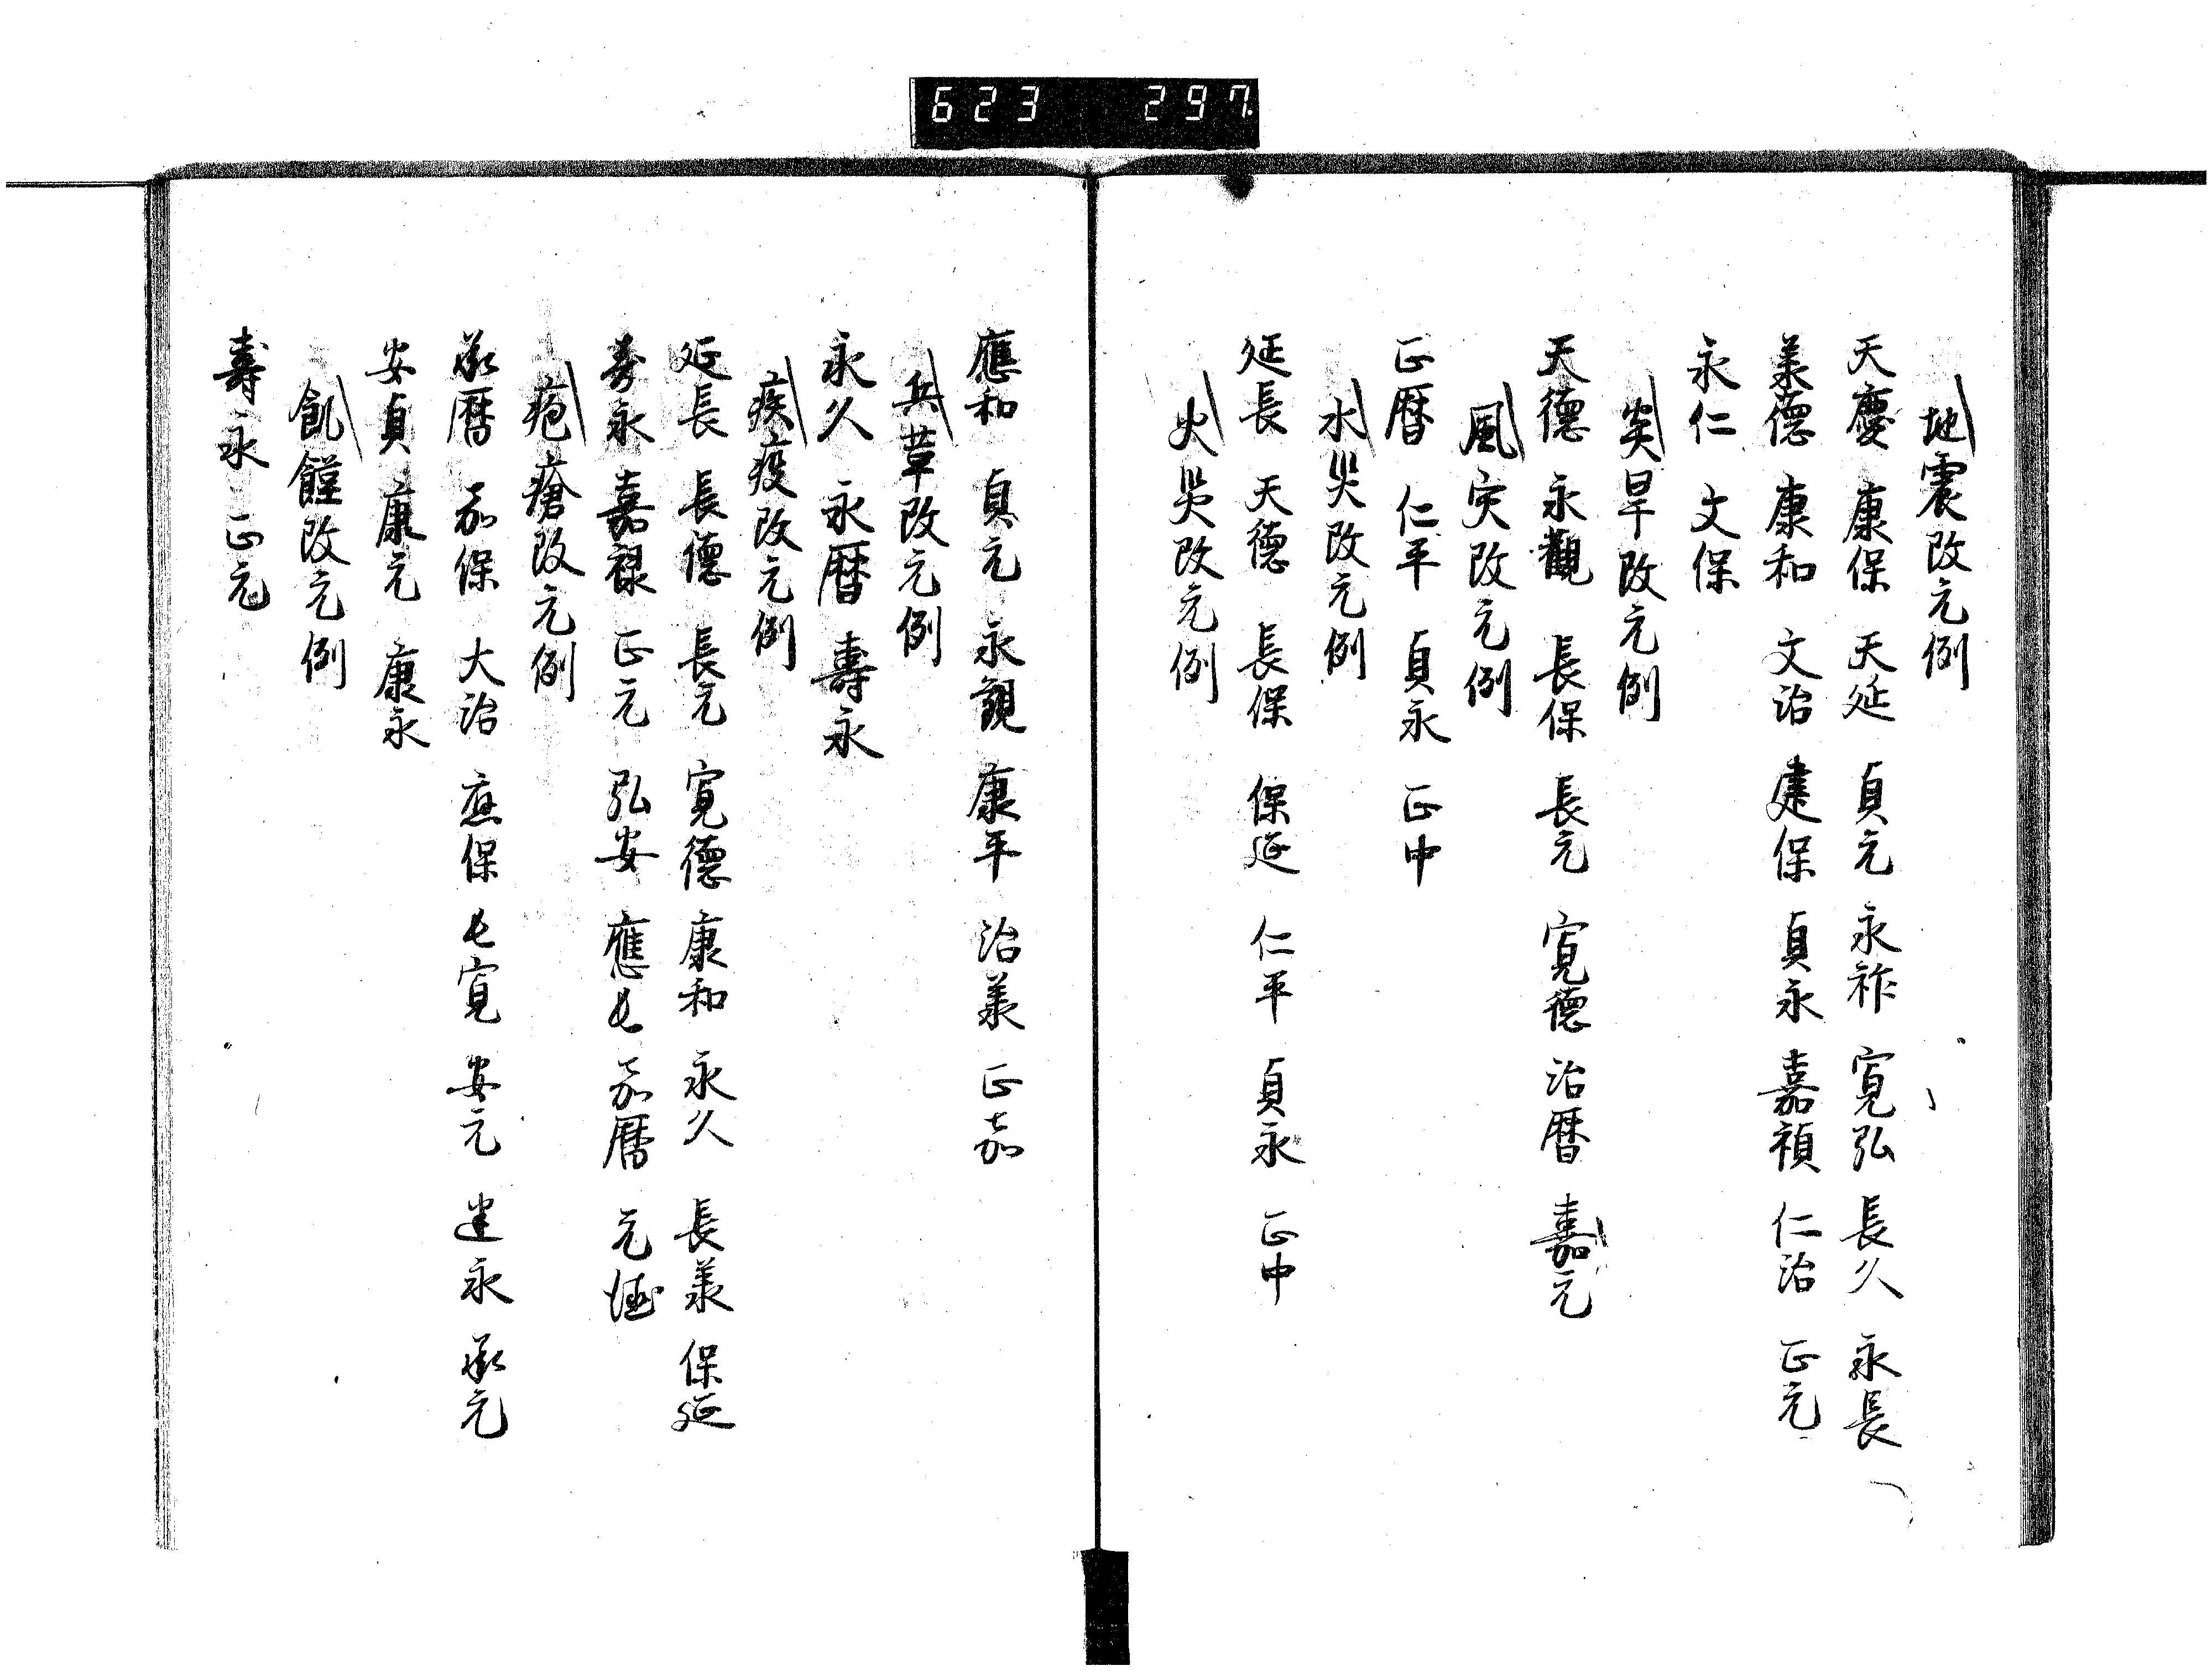 623 297
地震改元例
天慶 康保 天延 貞元 永祚 寛弘 長久 永長
承德 康和 文治 建保 貞永 嘉禎 仁治 正元
永仁 文保
炎旱改元例
天德 永觀 長保 長元 寛德 治暦 嘉元
風災改元例
正暦 仁平 貞永 正中
水災改元例
延長 天德 長保 保延 仁平 貞永 正中
火災改元例
應和 貞元 永觀 康平 治承 正嘉
兵革改元例
永久 永暦 壽永
疾疫改元例
延長 長德 長元 寛德 康和 永久 長承 保延
寿永 嘉禄 正元 弘安 應長 嘉暦 元徳
疱瘡改元例
承暦 嘉保 大治 應保 長寛 安元 建永 承元
安貞 康元 康永
飢饉改元例
壽永 正元